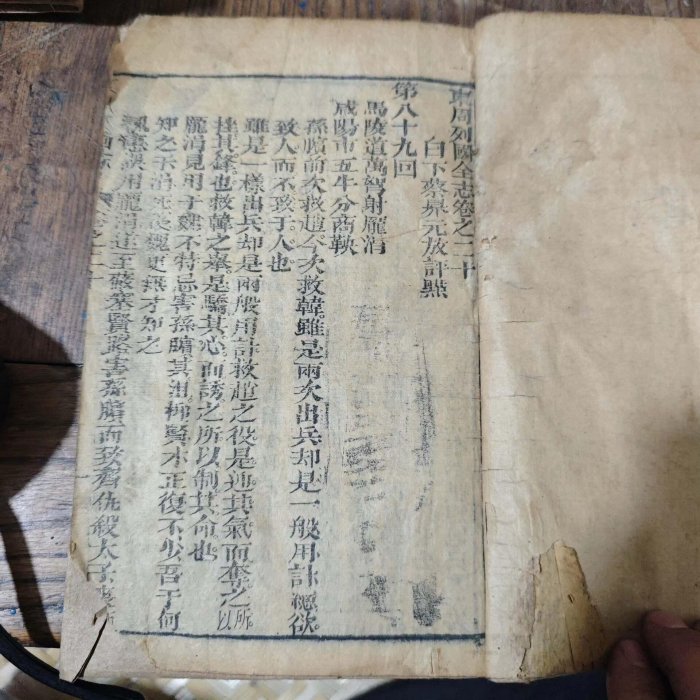 東周列國全志卷之二十
白下蔡昇元放評點
第八十九回
馬陵道萬弩射龐涓
咸陽市五牛分商鞅
孫臏前次救趙今次救韓雖是兩次出兵却是一般用計總欲
致人而不致于人也
雖是一樣出兵却是兩般用計救趙之役是迎其氣而奪之所以
挫其鋒也救韓之舉是驕其心而誘之所以制其命也
龐涓見用于魏不特忌害孫臏其沮抑賢才正復不少吾于何
知之于涓死後魏更無才知之
誤用龐涓遂至蔽塞賢路害孫臏而致齊仇殺太子